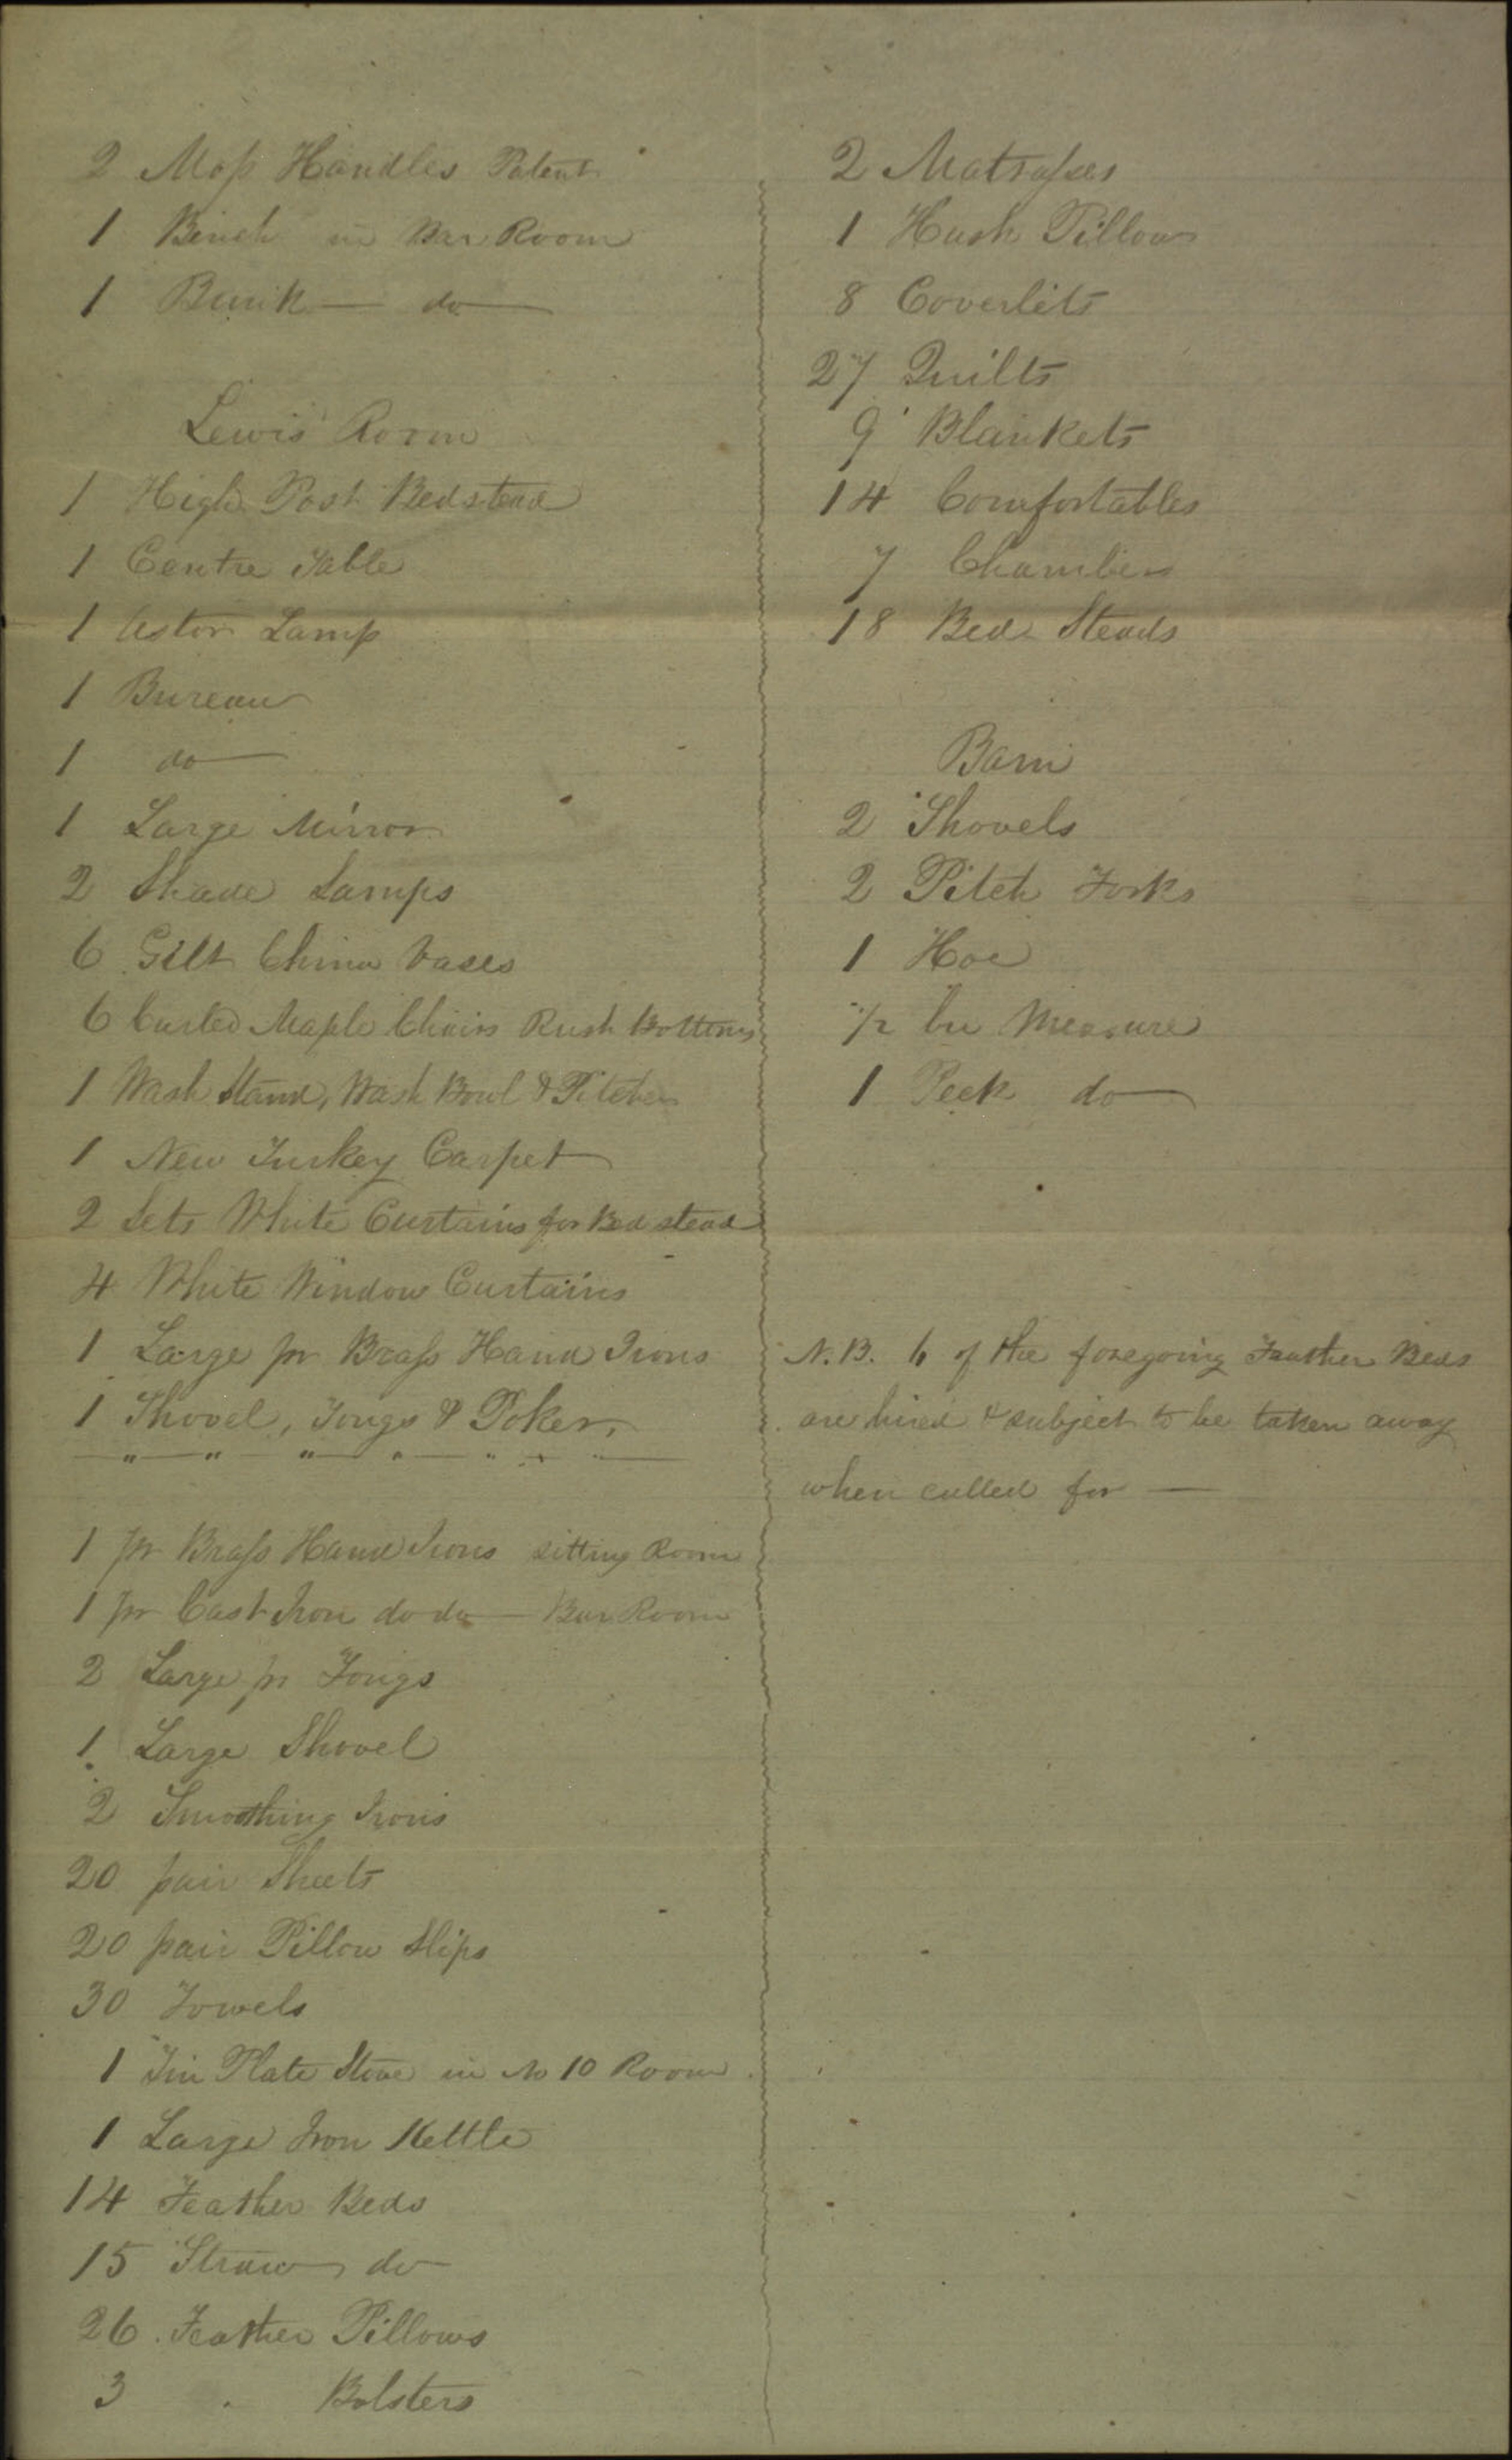 2 Mop Handles Patent
1 Bench in Bar Room
1 Bunk — do —
Lewis Room
1 High Post Bedstead
1 Centre Table
1 Astor Lamp
1 Bureau
1 do —
1 Large Mirror
2 Shade Lamps
6 Gilt China Vases
6 Curled Maple Chairs Rush Bottoms
1 Wash Stand, Wash Bowl & Pitcher
1 New Turkey Carpet
2 Sets White Curtains for Bed stead
4 White Window Curtains
1 Large pr Brass Hand Irons
1 Shovel, Tongs & Poker,
— " — " — " — " — " — " — " —
1 pr Brass Hand Irons sitting Room
1 pr Cast Iron do do — Bar Room
2 Large pr Tongs
1 Large Shovel
2 Smoothing Irons
20 pair Sheets
20 pair Pillow Slips
30 Towels
1 Tin Plate Stove in No 10 Room
1 Large Iron Kettle
14 Feather Beds
15 Straw do
26 Feather Pillows
3 " Bolsters
2 Matrasses
1 Husk Pillow
8 Coverlits
27 Quilts
9 Blankets
14 Comfortables
7 Chambers
18 Bed Steads
Barn
2 Shovels
2 Pitch Forks
1 Hoe
1/2 bu Measure
1 Peck do —
N.B. 6 of the foregoing Feather Beds
are hired & subject to be taken away
when called for —